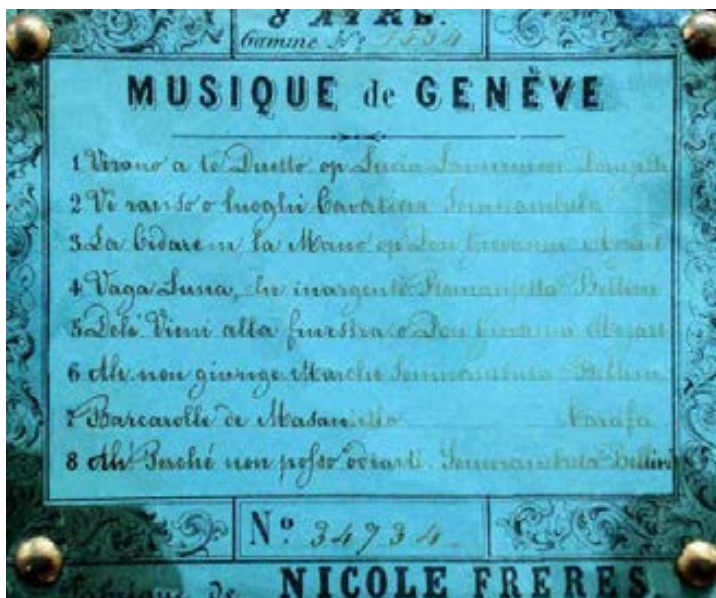 8 AIRS.
Gamme Nº
MUSIQUE de GENÈVE
1 Verano a te Duetto op Lucia
2 Vi raviso o luoghi Cavatina Somnambula
3 La Cidarem la Mano op Don Giovanni Mozart
4 Vaga Luna, che inargente Romanzetta Bellini
5 Deh! Vieni alla finestra o Don Giovanni Mozart
6 Ah. non giunge Marche Somnambula Bellini
7 Barcarolle de Masaniello Carafa
8 Ah! Perché non posso odiarti Somnambula Bellini
Nº 34734
Fabrique de NICOLE FRERES.